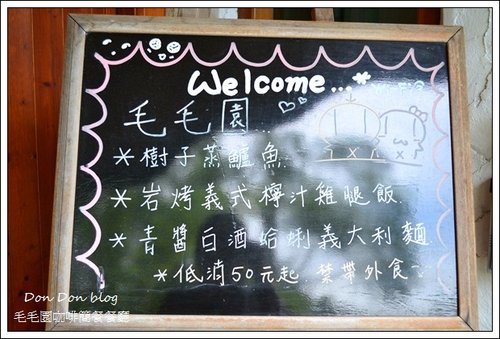 Welcome...*
毛毛園...
*樹子蒸鱸魚
*岩烤義式檸汁雞腿飯
*青醬白酒蛤蜊義大利麵
*低消50元起. 禁帶外食~
Don Don blog
毛毛園咖啡簡餐餐廳